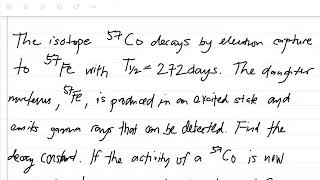 The isotope ⁵⁷Co decays by electron capture
to ⁵⁷Fe with T₁/₂ = 272 days. The daughter
nucleus, ⁵⁷Fe, is produced in an excited state and
emits gamma rays that can be detected. Find the
decay constant. If the activity of a ⁵⁷Co is now